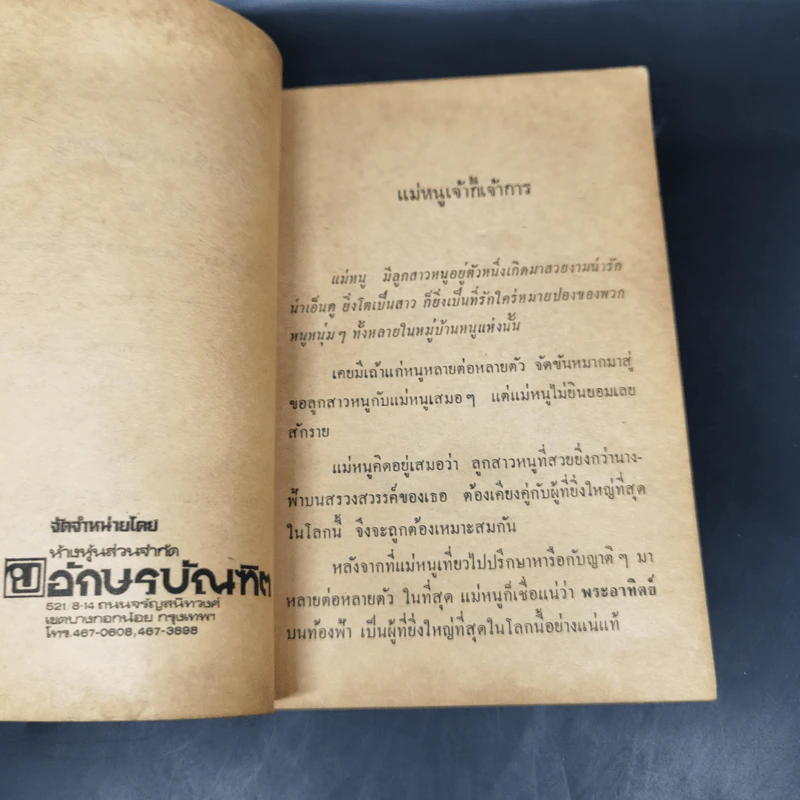 จัดจำหน่ายโดย
ห้างหุ้นส่วนจำกัด
อักษรบัณฑิต
521/8-14 ถนนจรัญสนิทวงศ์
เขตบางกอกน้อย กรุงเทพฯ
โทร. 467-0608, 467-3898
แม่หนูเจ้ากี้เจ้าการ
แม่หนู มีลูกสาวหนูอยู่ตัวหนึ่งเกิดมาสวยงามน่ารัก
น่าเอ็นดู ยิ่งโตเป็นสาว ก็ยิ่งเป็นที่รักใคร่หมายปองของพวก
หนูหนุ่มๆ ทั้งหลายในหมู่บ้านหนูแห่งนั้น
เคยมีเถ้าแก่หนูหลายต่อหลายตัว จัดขันหมากมาสู่
ขอลูกสาวหนูกับแม่หนูเสมอๆ แต่แม่หนูไม่ยินยอมเลย
สักราย
แม่หนูคิดอยู่เสมอว่า ลูกสาวหนูที่สวยยิ่งกว่านาง-
ฟ้าบนสรวงสวรรค์ของเธอ ต้องเคียงคู่กับผู้ที่ยิ่งใหญ่ที่สุด
ในโลกนี้ จึงจะถูกต้องเหมาะสมกัน
หลังจากที่แม่หนูเที่ยวไปปรึกษาหารือกับญาติๆ มา
หลายต่อหลายตัว ในที่สุด แม่หนูก็เชื่อแน่ว่า พระอาทิตย์
บนท้องฟ้า เป็นผู้ที่ยิ่งใหญ่ที่สุดในโลกนี้อย่างแน่แท้